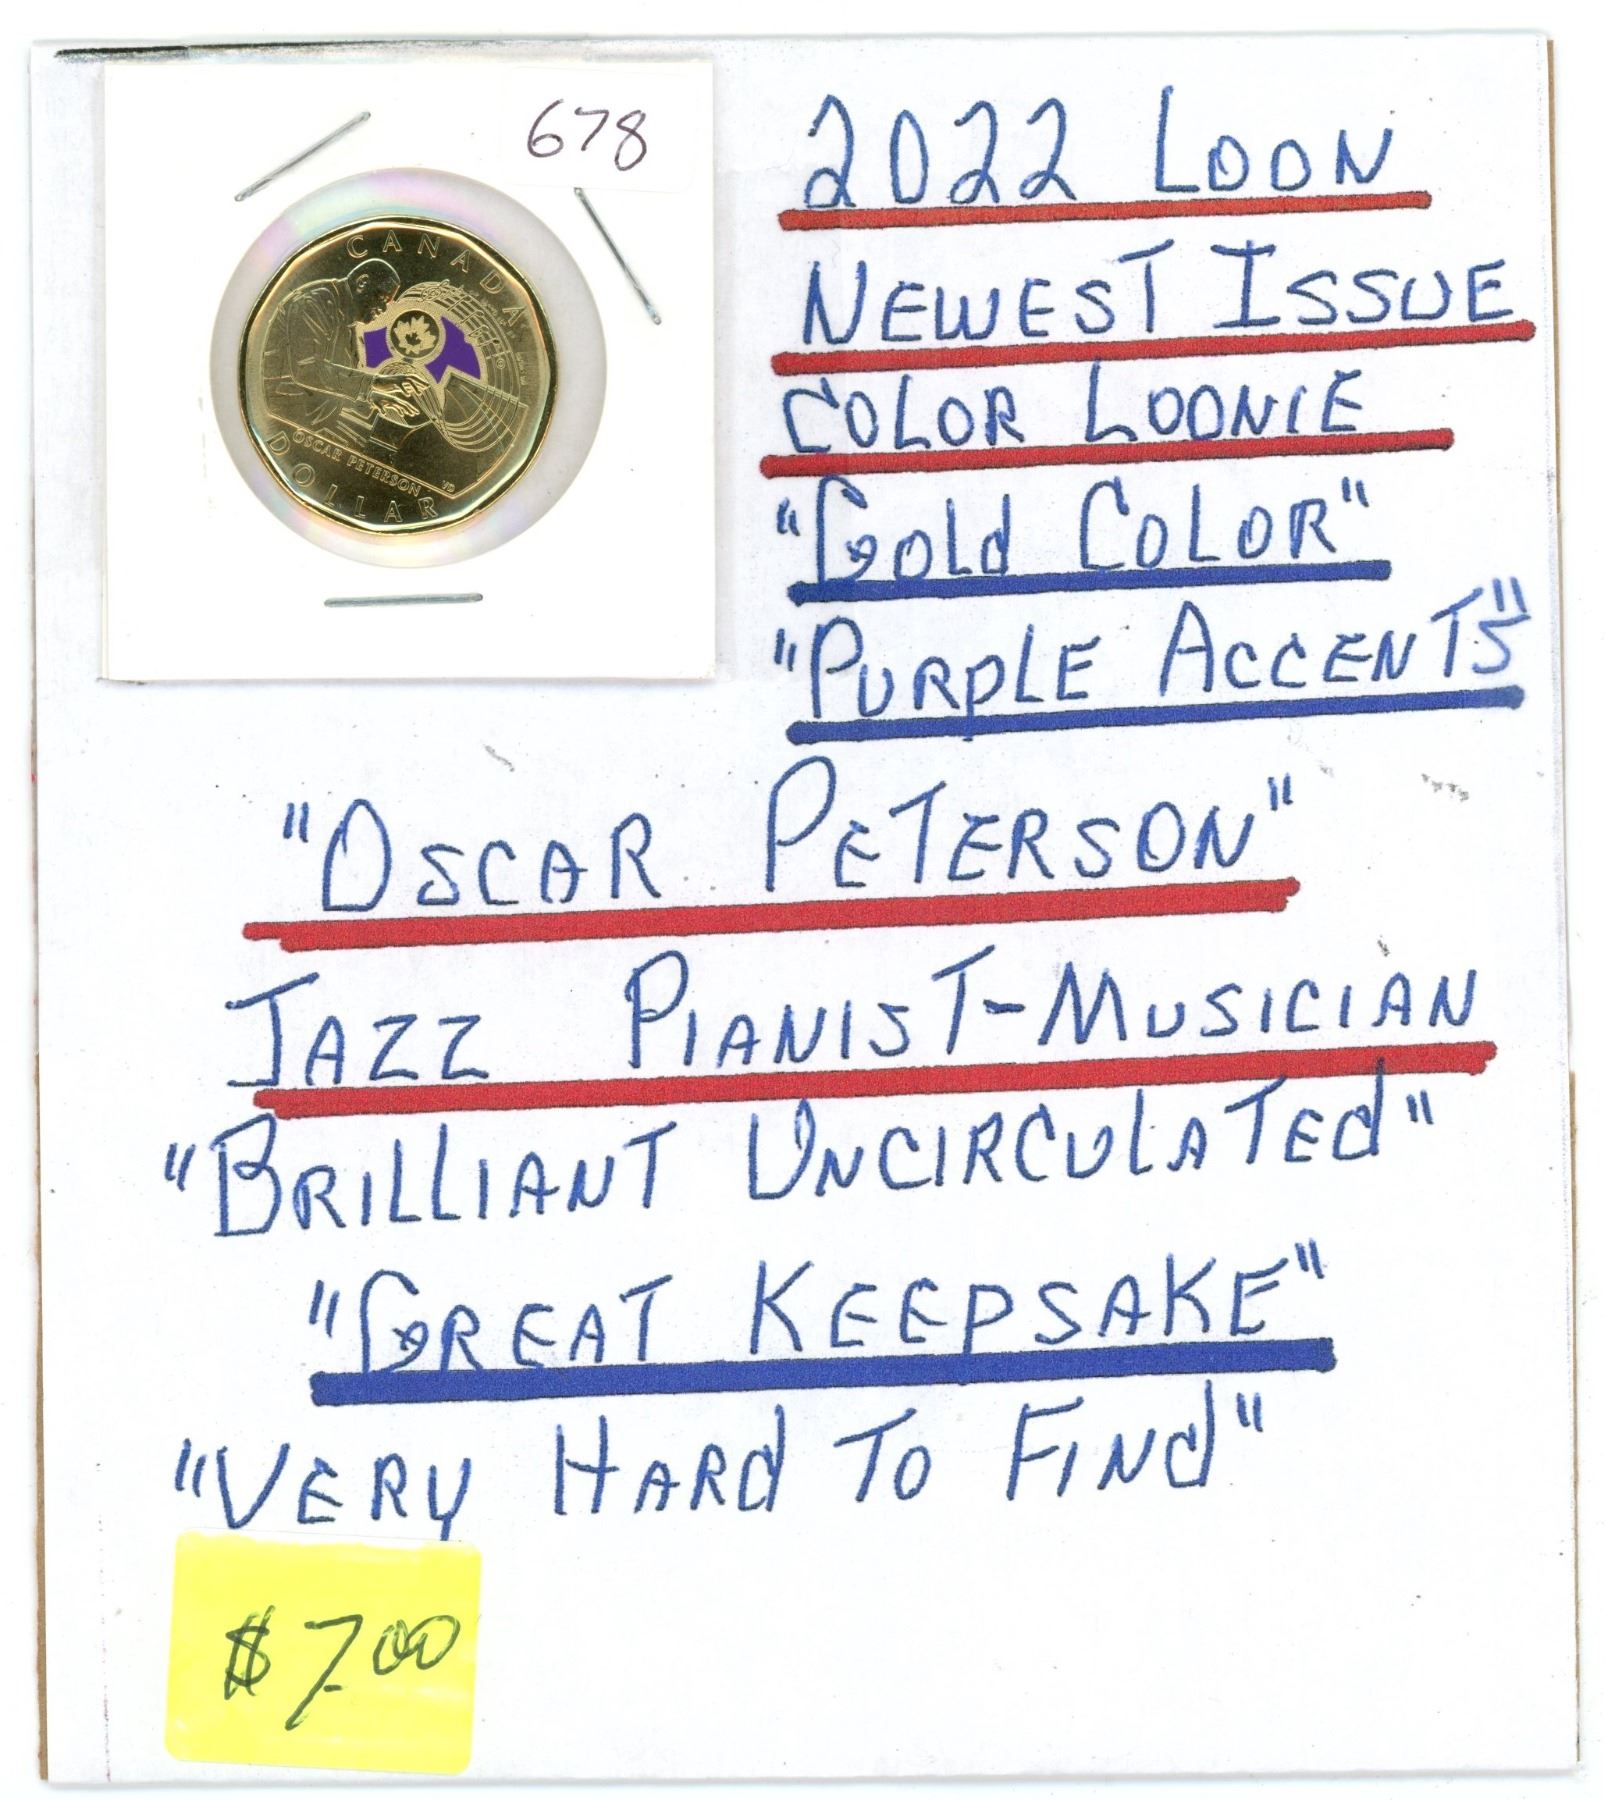 678
CANADA
OSCAR PETERSON
VD
DOLLAR
2022 LOON
NEWEST ISSUE
COLOR LOONIE
"GOLD COLOR"
"PURPLE ACCENTS"
"OSCAR PETERSON"
JAZZ PIANIST-MUSICIAN
"BRILLIANT UNCIRCULATED"
"GREAT KEEPSAKE"
"VERY HARD TO FIND"
$7.00